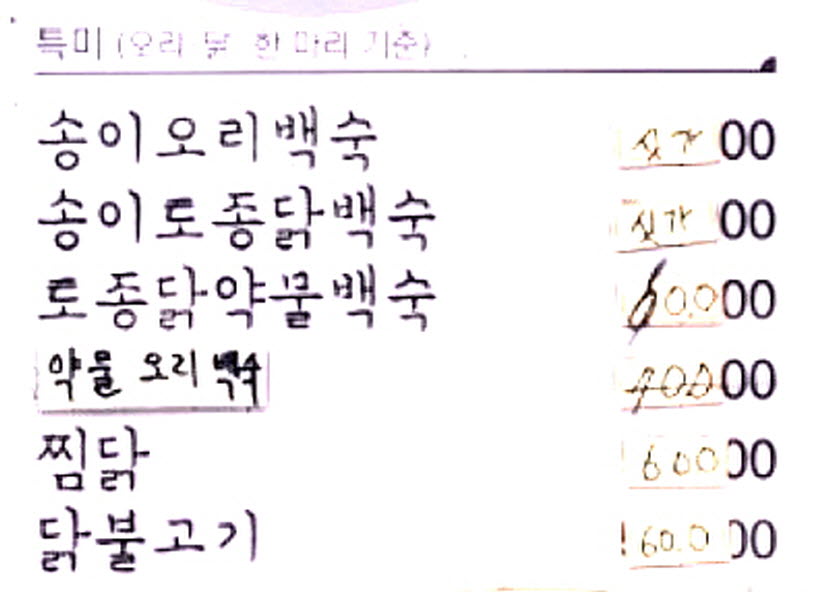 특미 (오리 닭 한 마리 기준)
송이오리백숙 싯가 00
송이토종닭백숙 싯가 00
토종닭약물백숙 60.000
약물 오리 백숙 00
찜닭 60000
닭불고기 60.000